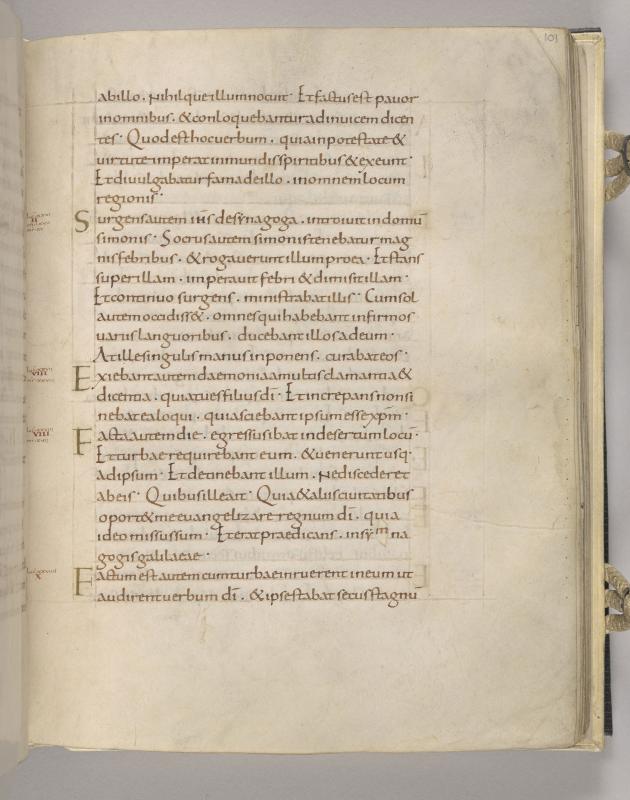 101
abillo. Nihilque illum nocuit. Et factus est pauor
in omnibus. & conloquebantur ad inuicem dicen
tes. Quod est hoc uerbum. quia in potestate &
uirtute imperat inmundis spiritibus & exeunt.
Et diuulgabatur fama de illo. in omnem locum
regionis.
Surgens autem ihs de synagoga. introiuit in domū
simonis. Socrus autem simonis tenebatur mag
nis febribus. & rogauerunt illum pro ea. Et stans
super illam. imperauit febri & dimisit illam.
Et continuo surgens. ministrabat illis. Cum sol
autem occidiss&. omnes qui habebant infirmos
uariis languoribus. ducebant illos ad eum.
At ille singulis manus inponens. curabat eos.
Exiebant autem daemonia a multis clamantia &
dicentia. quia tu es filius dī. Et increpans non si
nebat ea loqui. quia sciebant ipsum esse xpm̄.
Facta autem die. egressus ibat in desertum locū.
Et turbae requirebant eum. & uenerunt usq.
ad ipsum. Et detinebant illum. ne discederet
ab eis. Quibus ille ait. Quia & aliis ciuitatibus
oport& me euangelizare regnum dī. quia
ideo missus sum. Et erat praedicans. in synna
gogis galilaeae.
Factum est autem cum turbae inruerent in eum ut
audirent uerbum dī. & ipse stabat secus stagnū